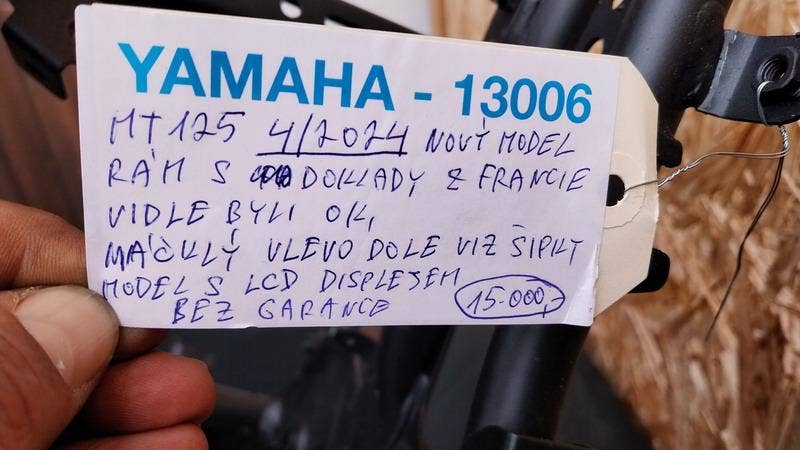 YAMAHA - 13006
MT 125 4/2024 NOVÝ MODEL
RÁM S DOKLADY Z FRANCIE
VIDLE BYLI OK,
MÁČKLÝ VLEVO DOLE VIZ ŠIPKY
MODEL S LCD DISPLEJEM
BEZ GARANCE 15.000,-